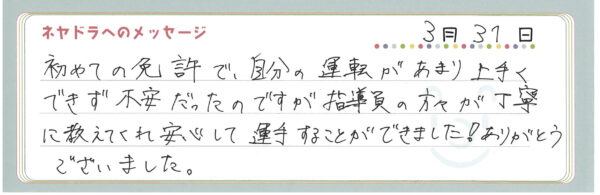 ネヤドラへのメッセージ
3月 31 日
初めての免許で、自分の運転があまり上手く
できず不安だったのですが指導員の方々が丁寧
に教えてくれ安心して運手することができました!ありがとう
ございました。